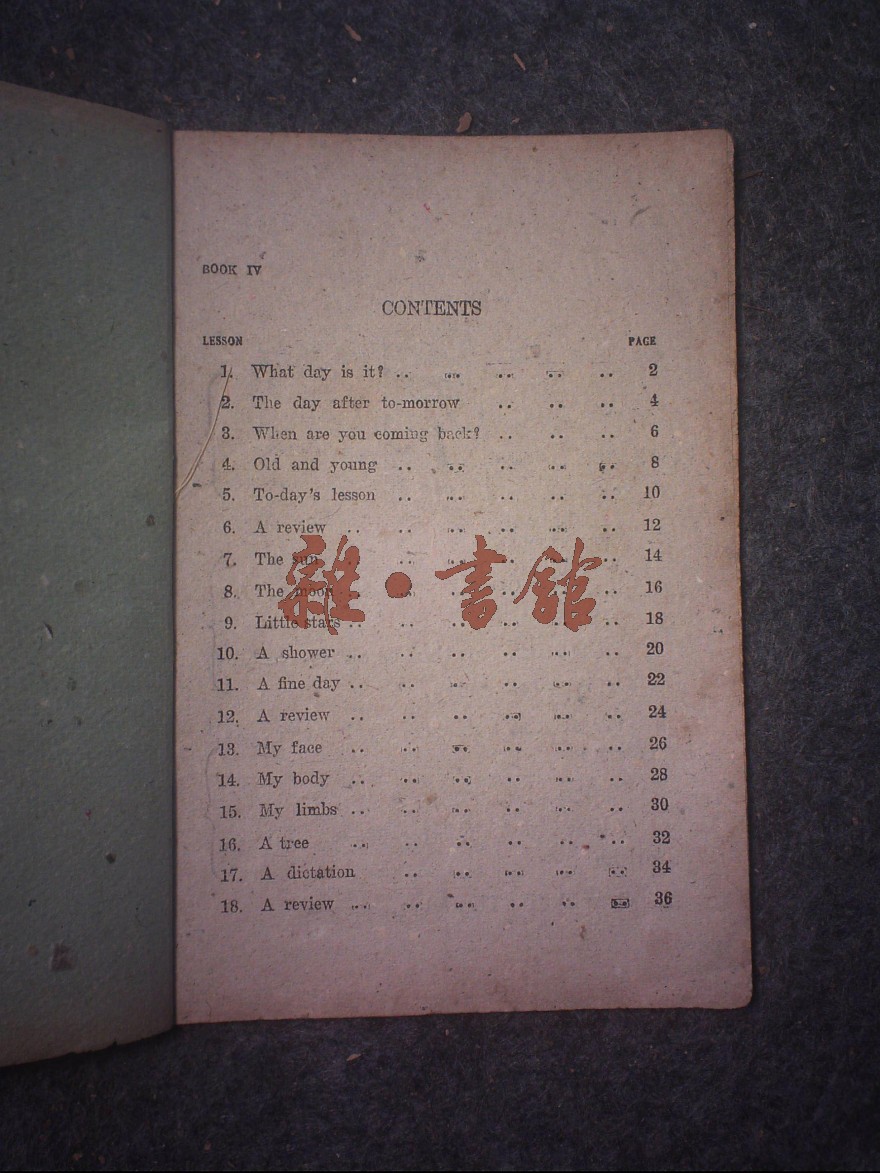 BOOK IV
CONTENTS
LESSON PAGE
1. What day is it? .. .. .. .. .. 2
2. The day after to-morrow .. .. .. 4
3. When are you coming back? .. .. .. 6
4. Old and young .. .. .. .. .. 8
5. To-day's lesson .. .. .. .. .. 10
6. A review .. .. .. .. .. .. 12
7. The sun .. .. .. .. .. .. 14
8. The moon .. .. .. .. .. .. 16
9. Little stars .. .. .. .. .. .. 18
10. A shower .. .. .. .. .. .. 20
11. A fine day .. .. .. .. .. .. 22
12. A review .. .. .. .. .. .. 24
13. My face .. .. .. .. .. .. 26
14. My body .. .. .. .. .. .. 28
15. My limbs .. .. .. .. .. .. 30
16. A tree .. .. .. .. .. .. 32
17. A dictation .. .. .. .. .. 34
18. A review .. .. .. .. .. .. 36
雜·書館